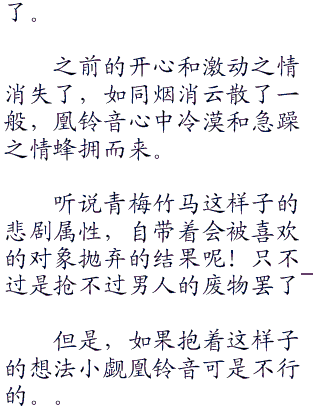 了。
之前的开心和激动之情
消失了，如同烟消云散了一
般，凰铃音心中冷漠和急躁
之情蜂拥而来。
听说青梅竹马这样子的
悲剧属性，自带着会被喜欢
的对象抛弃的结果呢！只不
过是抢不过男人的废物罢了_
但是，如果抱着这样子
的想法小觑凰铃音可是不行
的。。